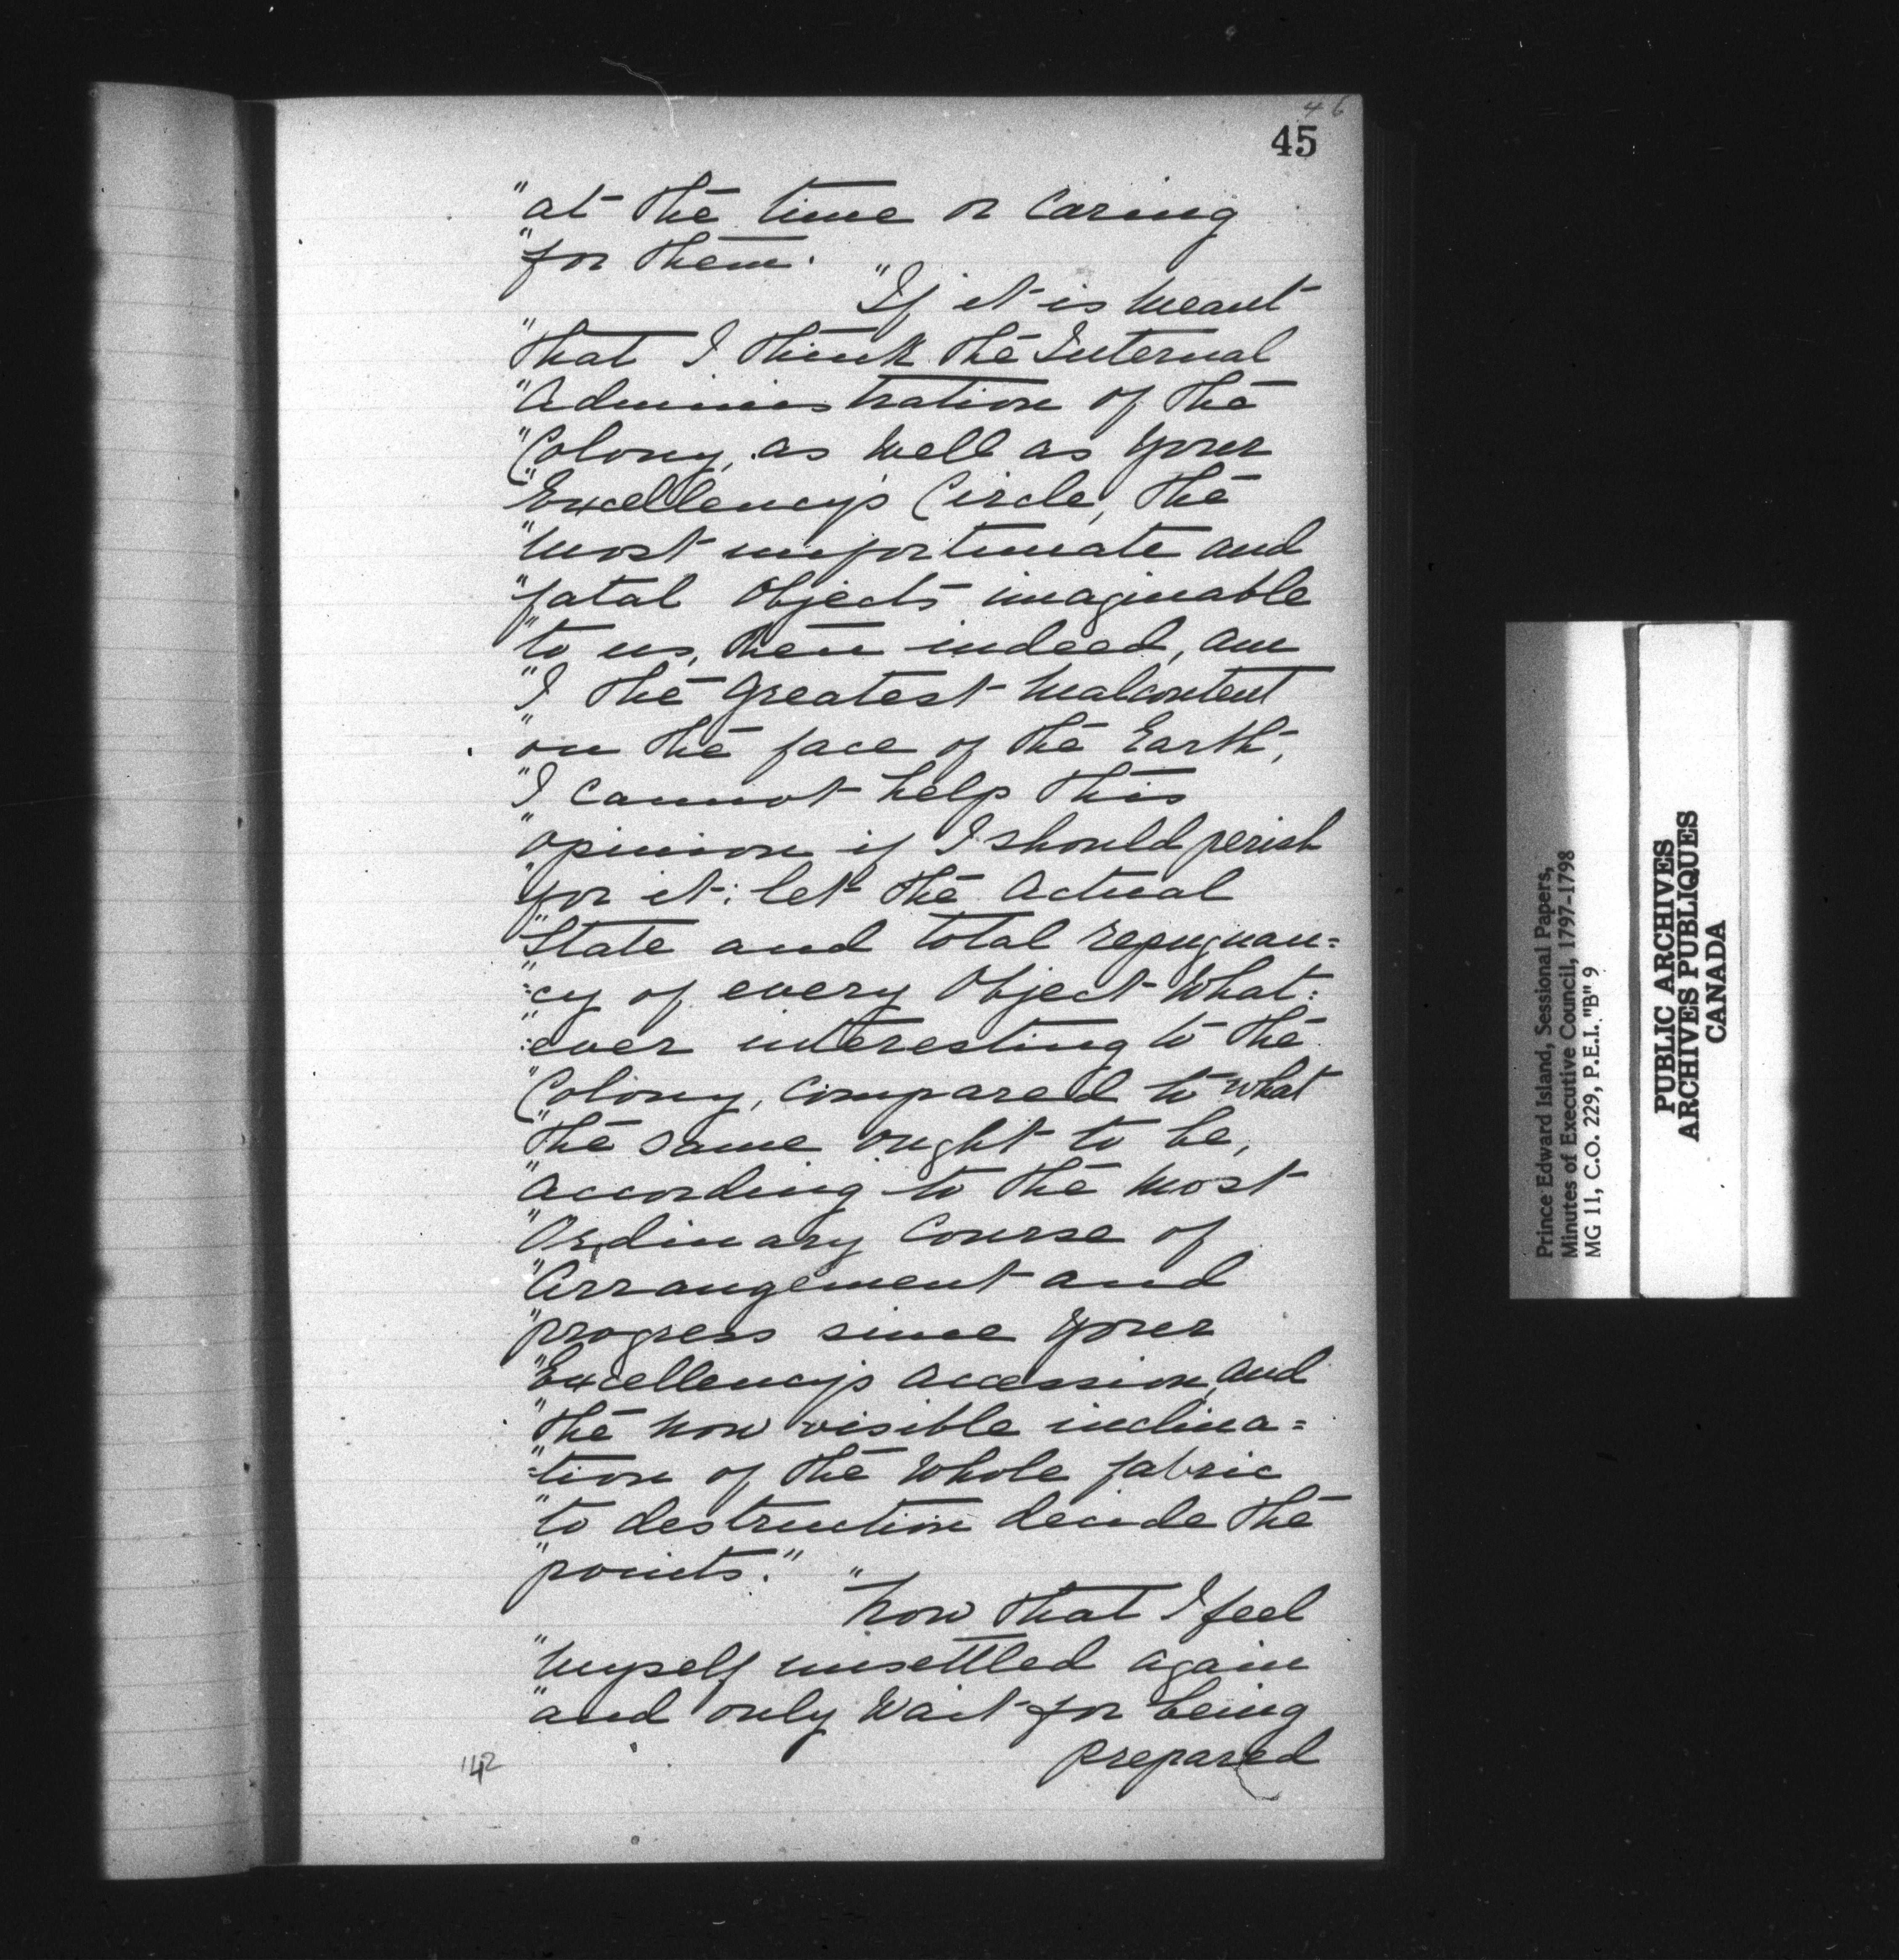 46
45
"at the time or Caring
"for them.
"If it is meant
"that I think the Internal
"Administration of the
"Colony, as well as your
"Excellency's Circle, the
"most unfortunate and
"fatal Objects imaginable
"to us, then indeed, am
"I the greatest Malcontent
"on the face of the Earth;
"I cannot help this
"opinion if I should perish
"for it: let the actual
"State and total repugnan=
"=cy of every Object What=
":ever interesting to the
"Colony, compared to what
"the same ought to be,
"according to the most
"Ordinary Course of
"Arrangement and
"progress since your
"Excellency's accession, and
"the now visible inclina=
"=tion of the Whole fabric
"to destruction decide the
"points."
"Now that I feel
"myself unsettled again
"and only Wait for being
prepared
42
Prince Edward Island, Sessional Papers,
Minutes of Executive Council, 1797-1798
MG 11, C.O. 229, P.E.I. "B" 9
PUBLIC ARCHIVES
ARCHIVES PUBLIQUES
CANADA